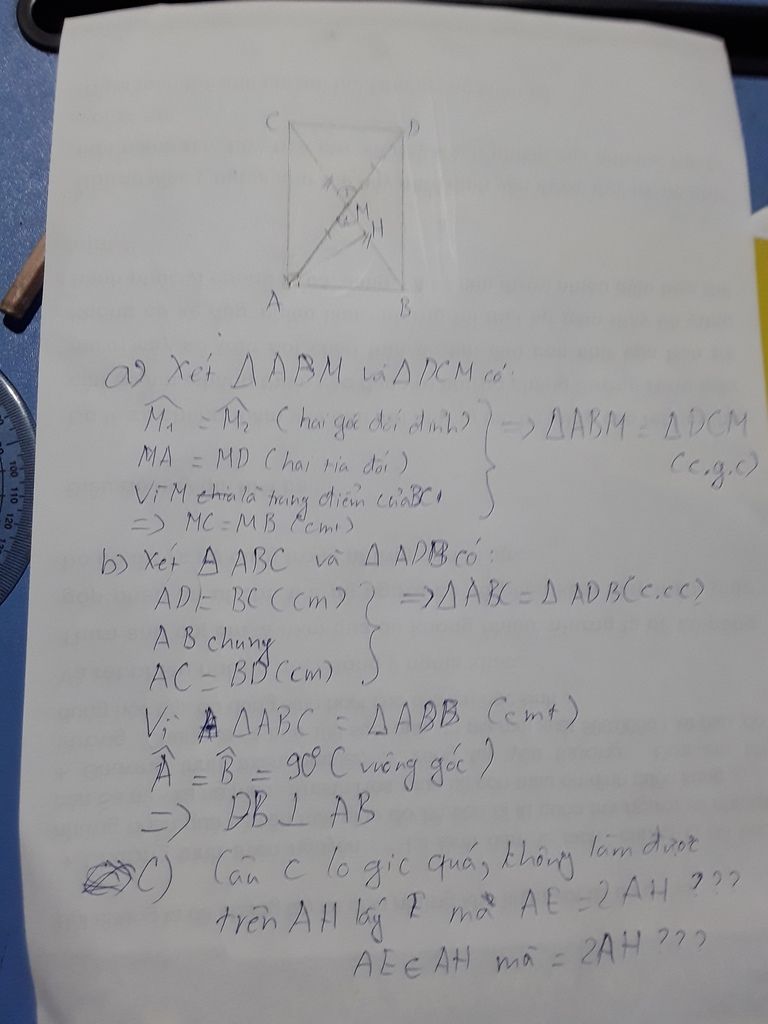 C
D
M
H
A
B
a) Xét ΔABM và ΔDCM có:
M̂₁ = M̂₂ (hai góc đối đỉnh)
MA = MD (hai tia đối)
Vì M là trung điểm của BC
=> MC = MB (cmt)
=> ΔABM = ΔDCM
(c.g.c)
b) Xét ΔABC và ΔADB có:
AD = BC (cm)
AB chung
AC = BD (cm)
=> ΔABC = ΔADB (c.c.c)
Vì ΔABC = ΔADB (cmt)
Â = B̂ = 90° (vuông góc)
=> DB ⊥ AB
C) Câu c logic quá, không làm được
trên AH lấy E mà AE = 2AH ???
AE ∈ AH mà = 2AH ???